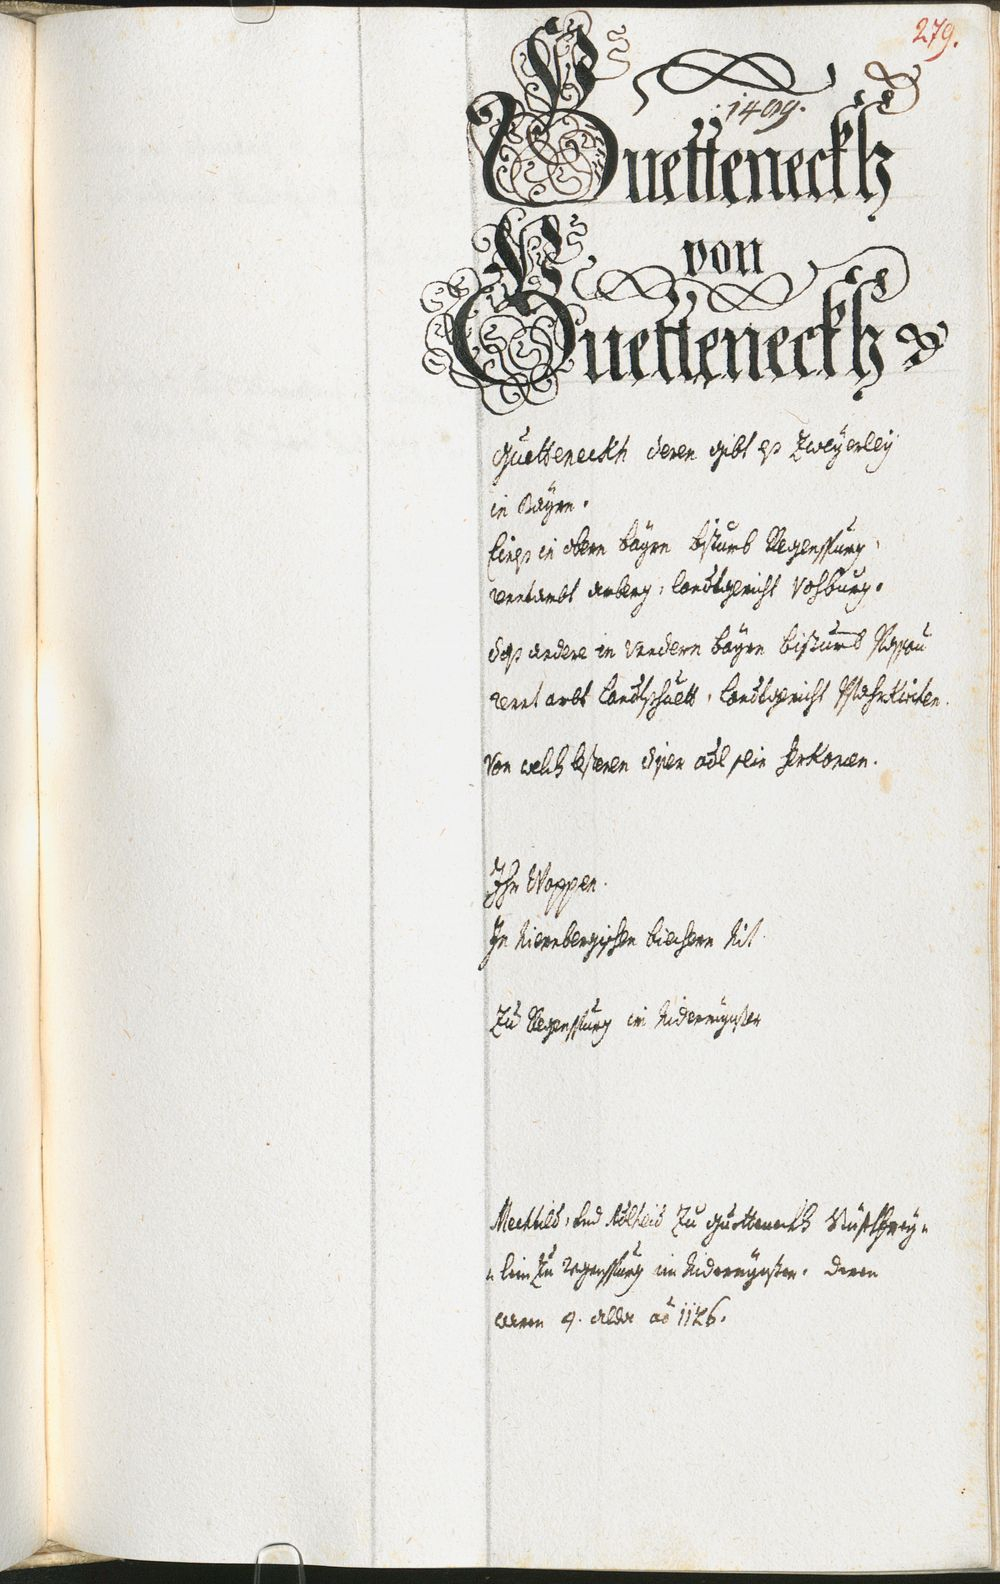 279.
1409.
Guetteneckh
von
Guetteneckh
Guetteneckh deren gibt es zweÿerleÿ
in Baÿrn.
Eines in obern baÿrn bistumb Regenspurg,
rentambt , landtgericht Vohburg.
das andere in undern baÿrn bistumb Passau
rent ambt Landtshuett, landtgericht Pfahrkirchen.
Von welch lesteren diser adl sein herkomen.
Ihr Wappen.
In Niernbergischen biechern Nit
Zu Regenspurg im Nidermünster
Mechtild, und Adlheid Zu Guetteneckh Stüfftfreÿ-
-lein Zu regenspurg im Nidermünster. deren
waren 4. alda aõ 1126.